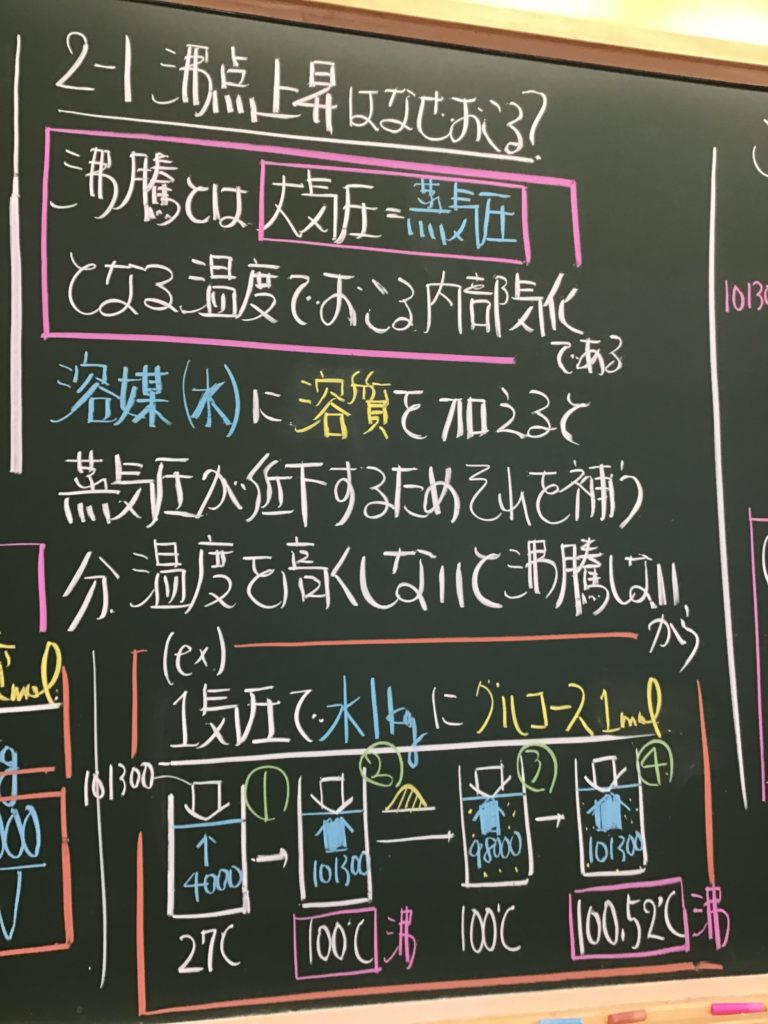 2-1 沸点上昇はなぜおこる?
沸騰とは 大気圧=蒸気圧
となる温度でおこる内部気化
である
溶媒(水)に溶質を加えると
蒸気圧が低下するためそれを補う
分温度を高くしないと沸騰しない
から
(ex)
1気圧で水1kgにグルコース1mol
101300
① ② ③ ④
4000 101300 98000 101300
27℃ 100℃ 沸 100℃ 100.52℃ 沸
mol
g
000
V
1013